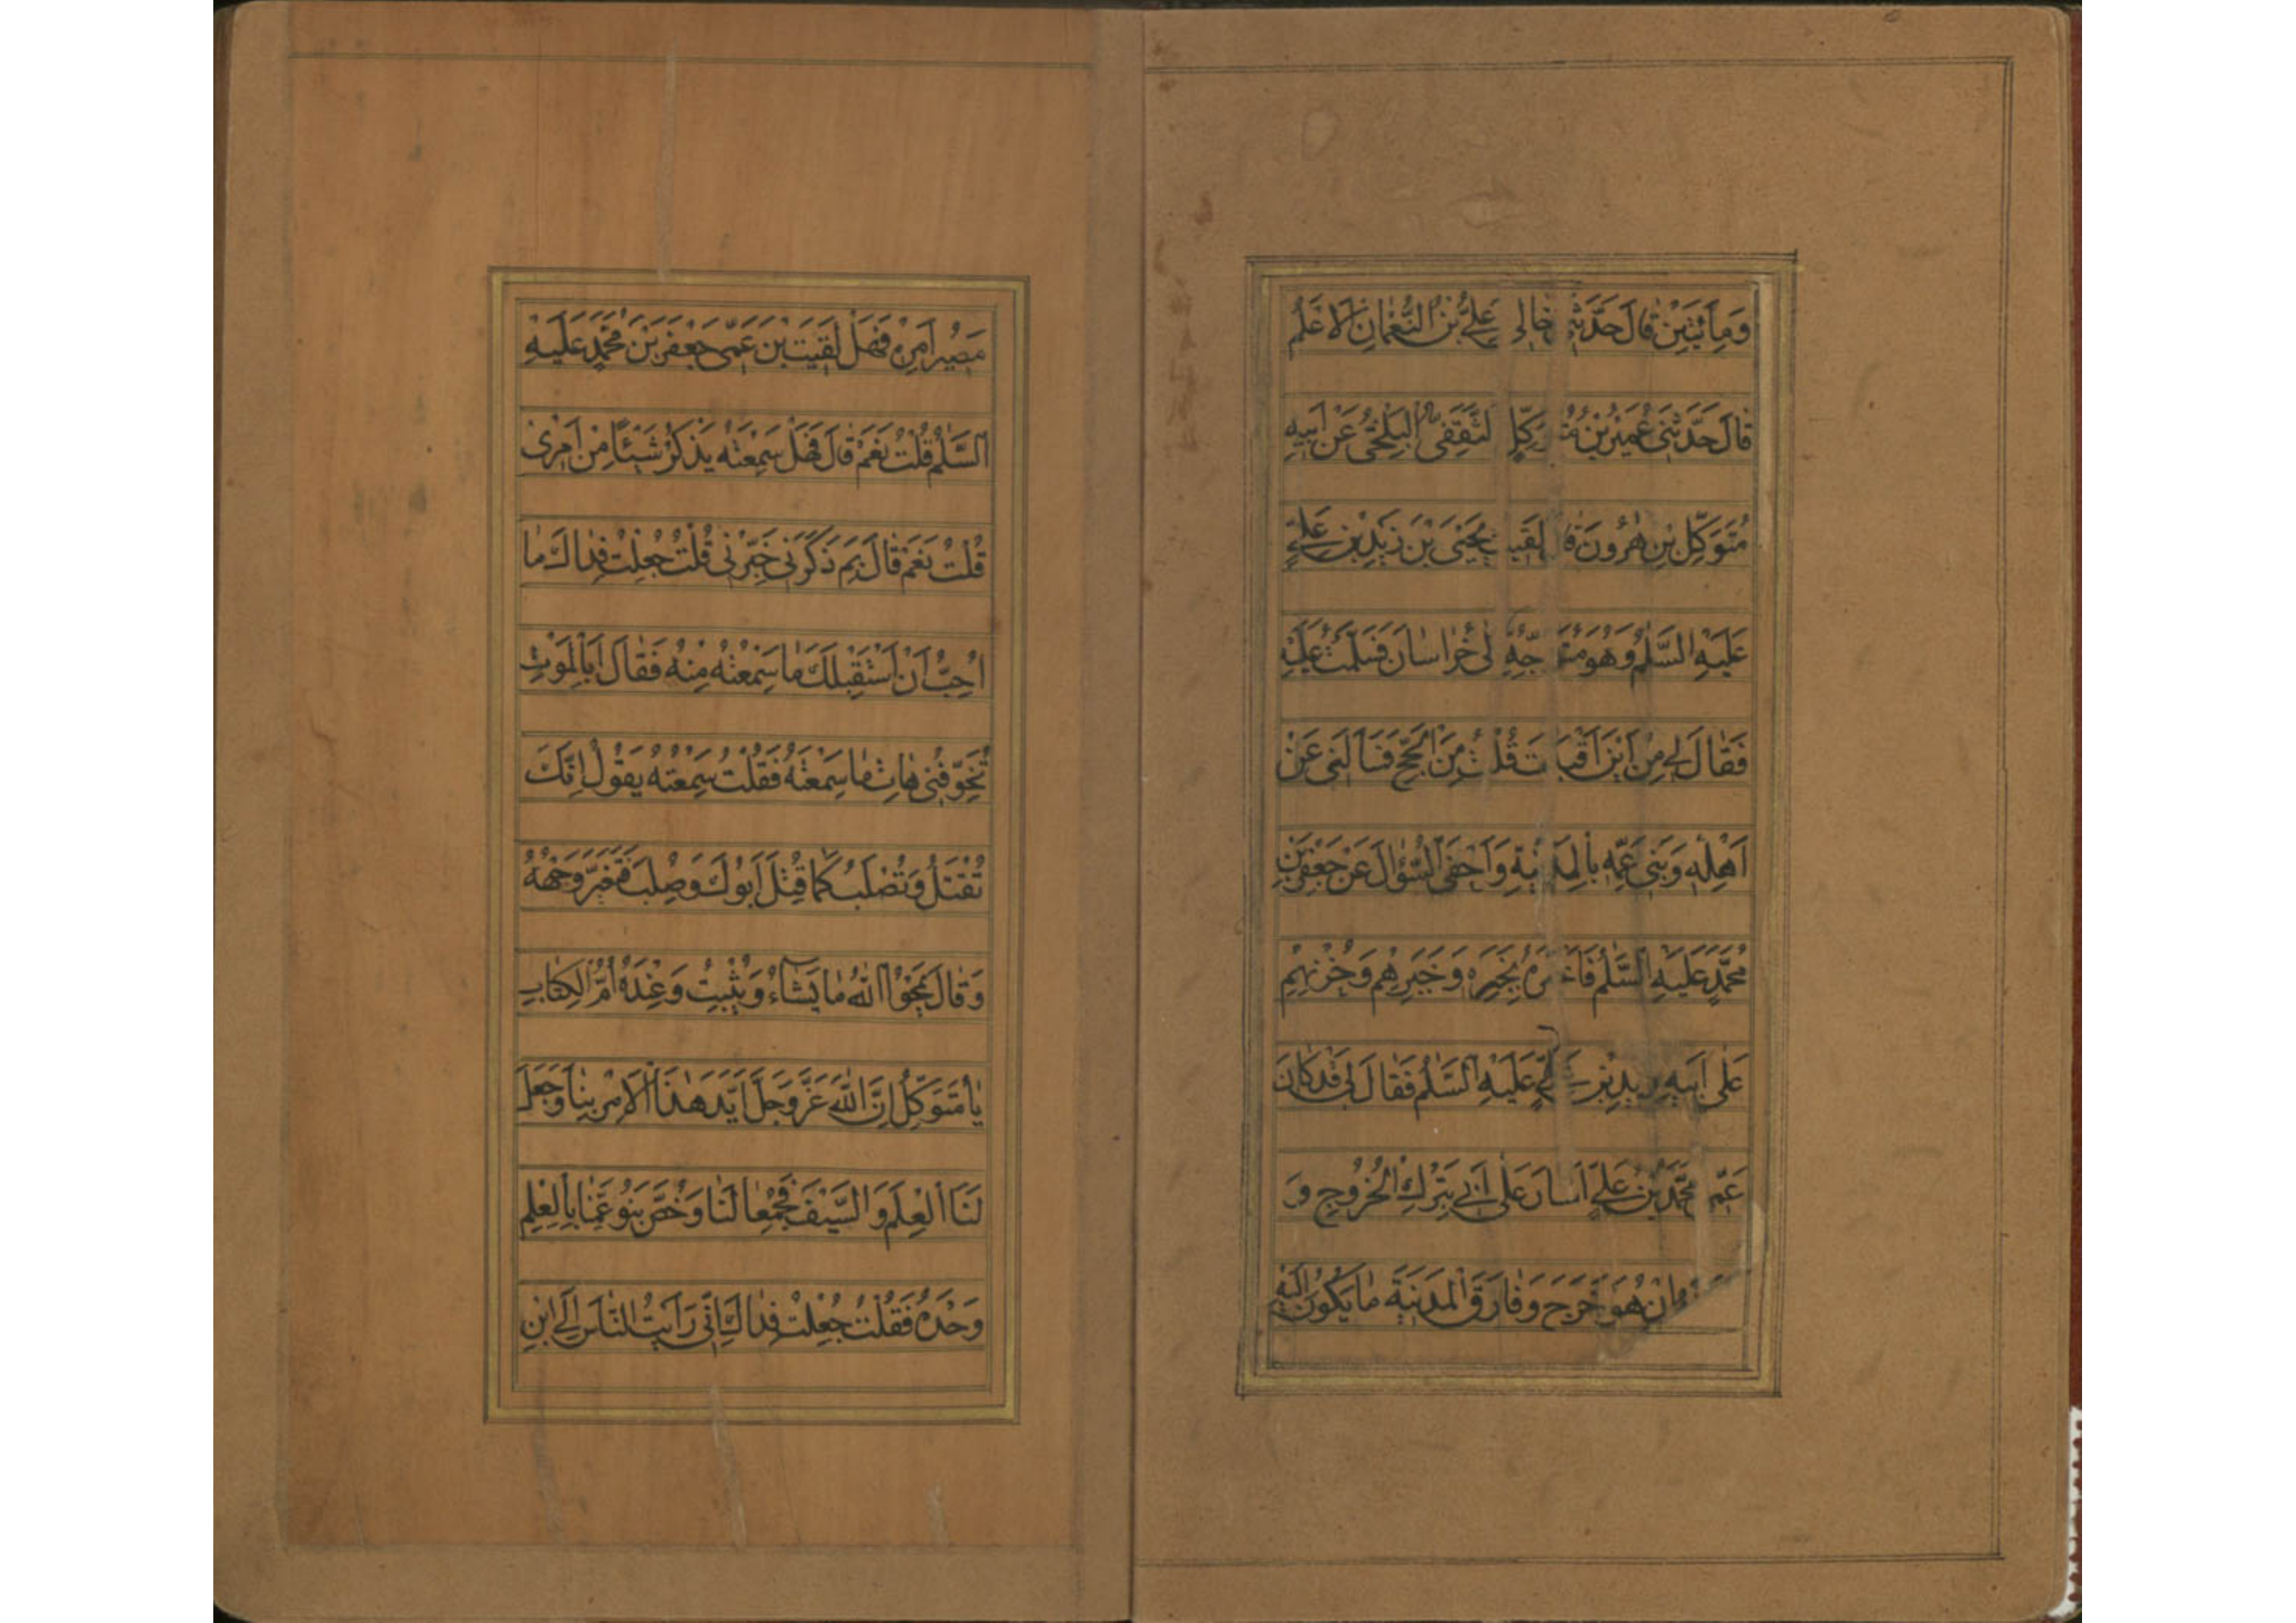 وَمِاَئَتَيْنِ قٰالَ حَدَّثَنِي خٰالِي عَلِيُّ بْنُ النُّعْمٰانِ الْاَعْلَمُ
قٰالَ حَدَّثَنِي عُمَيْرُ بْنُ الثَّقَفِيُّ الْبَلْخِيُّ عَنْ اَبِيهِ
مُتَوَكِّلِ بْنِ هٰرُونَ لَقِيتُ يَحْيَى بْنَ زَيْدِ بْنِ عَلِيٍّ
عَلَيْهِ السَّلٰمُ وَهُوَ مُتَوَجِّهٌ اِلٰى خُرٰاسٰانَ فَسَلَّمْتُ عَلَيْهِ
فَقٰالَ لِي مِنْ اَيْنَ اَقْبَلْتَ قُلْتُ مِنَ الْحَجِّ فَسَاَلَنِي عَنْ
اَهْلِهِ وَبَنِي عَمِّهِ بِالْمَدِينَةِ وَاَحْفَى السُّؤٰالَ عَنْ جَعْفَرِ بْنِ
مُحَمَّدٍ عَلَيْهِ السَّلٰمُ فَاَخْبَرْتُهُ بِخَبَرِهِ وَخَبَرِهِمْ وَحُزْنِهِمْ
عَلٰى اَبِيهِ زَيْدِ بْنِ عَلِيٍّ عَلَيْهِ السَّلٰمُ فَقٰالَ لِي قَدْ كٰانَ
عَمِّي مُحَمَّدُ بْنُ عَلِيٍّ اَشٰارَ عَلٰى اَبِي بِتَرْكِ الْخُرُوجِ وَ
اِنْ هُوَ خَرَجَ وَفٰارَقَ الْمَدِينَةَ مٰا يَكُونُ اِلَيْهِ
مَصِيرُ اَمْرِهِ فَهَلْ لَقِيتَ بْنَ عَمِّي جَعْفَرَ بْنَ مُحَمَّدٍ عَلَيْهِ
السَّلٰمُ قُلْتُ نَعَمْ قٰالَ فَهَلْ سَمِعْتَهُ يَذْكُرُ شَيْئًا مِنْ اَمْرِي
قُلْتُ نَعَمْ قٰالَ بِمَ ذَكَرَنِي خَبِّرْنِي قُلْتُ جُعِلْتُ فِدٰاكَ مٰا
اُحِبُّ اَنْ اَسْتَقْبِلَكَ مٰا سَمِعْتُهُ مِنْهُ فَقٰالَ اَبِالْمَوْتِ
تُخَوِّفُنِي هٰاتِ مٰا سَمِعْتَهُ فَقُلْتُ سَمِعْتُهُ يَقُولُ اِنَّكَ
تُقْتَلُ وَتُصْلَبُ كَمٰا قُتِلَ اَبُوكَ وَصُلِبَ فَتَغَيَّرَ وَجْهُهُ
وَقٰالَ يَمْحُوا اللّٰهُ مٰا يَشٰاءُ وَيُثْبِتُ وَعِنْدَهُ اُمُّ الْكِتٰابِ
يٰا مُتَوَكِّلُ اِنَّ اللّٰهَ عَزَّوَجَلَّ اَيَّدَ هٰذَا الْاَمْرَ بِنٰا وَجَعَلَ
لَنَا الْعِلْمَ وَالسَّيْفَ فَجُمِعٰا لَنٰا وَخُصَّ بَنُو عَمِّنٰا بِالْعِلْمِ
وَحْدَهُ فَقُلْتُ جُعِلْتُ فِدٰاكَ اِنِّي رَاَيْتُ النّٰاسَ اِلَى ابْنِ